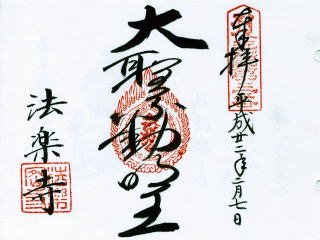 奉拝
平成廿二年二月七日
大聖不動明王
法楽寺